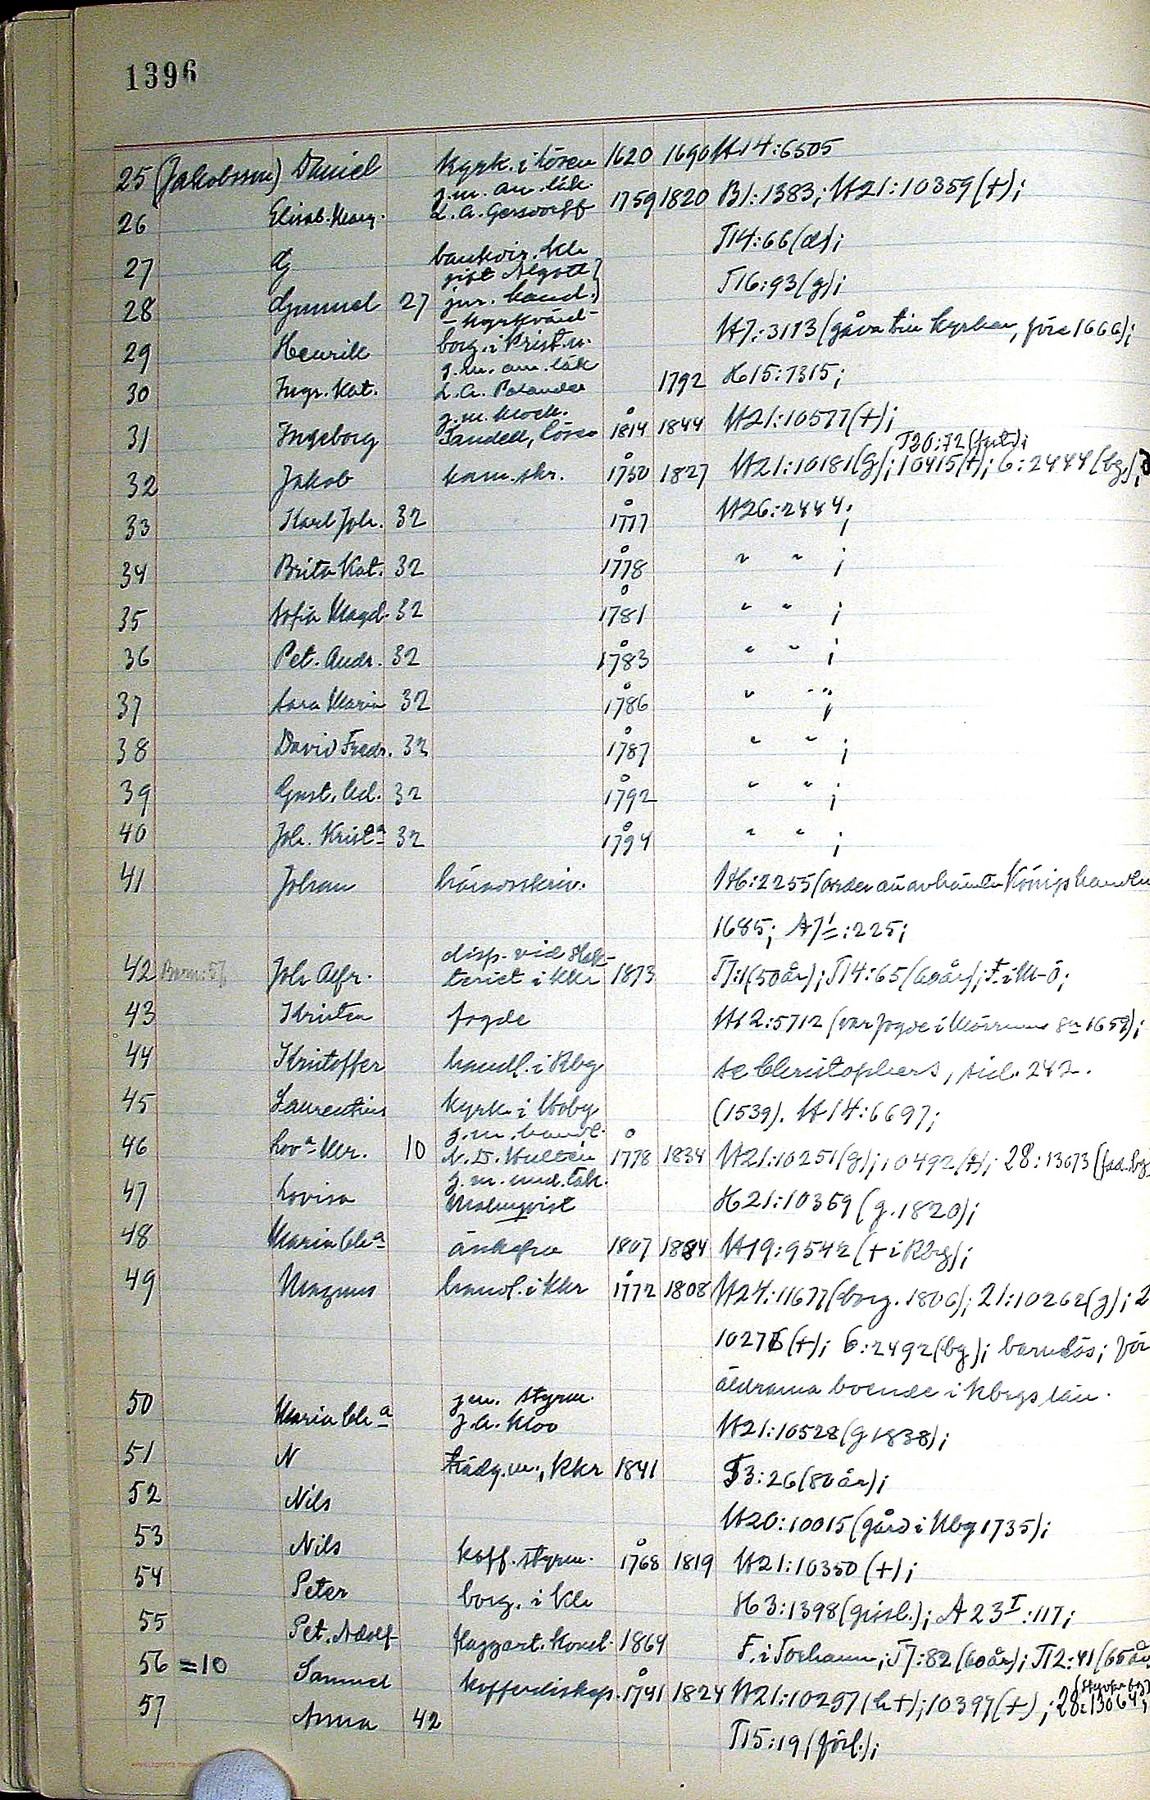 1396
25 (Jakobsson) Daniel kyrk. i Lösen 1620 1690 H14:6505
26 Elisab. Marg. g.m. an. läk. L. A. Gersdorff 1759 1820 B1:1383; H21:10359(+);
27 G bankdir. Kls T14:66(d);
28 Gunnel 27 gift Algott jur. kand.) T16:93(g);
29 Henrik - kyrkvärd - borg. i Krist.n. H7:3113 (gåva till kyrkan, före 1666);
30 Ingr. Kat. g.m. am. läk L. A. Palander 1792 H15:7315;
31 Ingeborg g.m. klock. Sandell, Lösen 1814 1844 H21:10577(+);
T20:72(fnt);
32 Jakob kam. skr. 1750 1827 H21:10181(g); 10415(+); 6:2444(bg);
33 Karl Joh. 32 1777 H26:2444;
34 Brita Kat. 32 1778 " " ;
35 Sofia Magd. 32 1781 " " ;
36 Pet. Andr. 32 1783 " " ;
37 Sara Maria 32 1786 " " ;
38 David Fredr. 32 1787 " " ;
39 Gust. Ad. 32 1792 " " ;
40 Joh. Krist:a 32 1794 " " ;
41 Johan häradsskriv. H6:2255
1685; A7I:225;
42 Joh. Alfr. disp. vid teriet i Kkr 1873 T7:1(50år); T14:65(60år); F. i M-ö;
43 Kristen fogde H12:5712 (var fogde i Mörrum 1659);
44 Kristoffer handl. i Kbg se Christophers, sid. 242.
45 Laurentius kyrk. i Hoby (1539). H14:6697;
46 Lov:a Ulr. 10 g.m. handl. N. D. Hultén 1778 1834 H21:10251(g); 10492(+); 28:13673
47 Lovisa g.m. md. läk. Malmqvist H21:10359 (g. 1820);
48 Maria Chr:a änkefru 1807 1884 H19:9542 (+ i Kbg);
49 Magnus handl. i Kkr 1772 1808 H24:11677(borg. 1806); 21:10262(g); 2
10276(+); 6:2492(bg); barnlös; för
äldrarna boende i Kbgs län.
50 Maria Chr:a g.m. styrm. J. A. Kloo H21:10528(g 1838);
51 N trädg.m., Kkr 1841 T3:26(80år);
52 Nils H20:10015 (gård i Kbg 1735);
53 Nils koff. styrm. 1768 1819 H21:10350(+);
54 Peter borg. i Kkr H3:1398(gissl.); A23I:117;
55 Pet. Adolf flaggart. konst. 1864 F. i Torhamn; T7:82(60år); T12:41(65år
56 = 10 Samuel kofferdiskap. 1741 1824 H21:10297(h+); 10397(+); 28:13064;
57 Anna 42 T15:19(förl.);